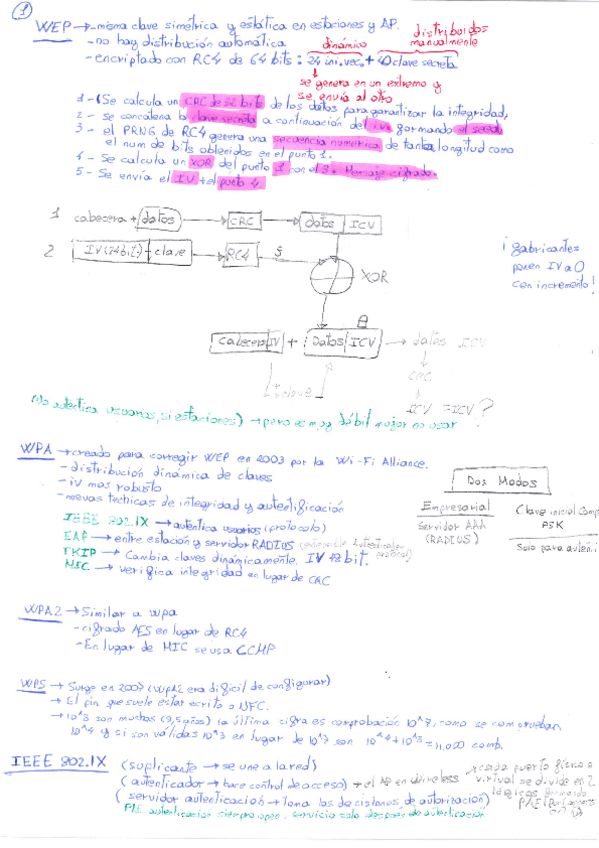 1
WEP → -misma clave simétrica y estática en estaciones y AP.
distribuidos manualmente
- no hay distribución automática
dinámico
- encriptado con RC4 de 64 bits : 24 ini.vec. + 40 clave secreta
se genera en un extremo y
se envía al otro
1 - Se calcula un CRC de 32 bits de los datos para garantizar la integridad,
2 - se concatena la clave secreta a continuación del i.v. formando el seed
3 - el PRNG de RC4 genera una secuencia numérica de tanta longitud como
el num de bits obtenidos en el punto 1.
4 - Se calcula un XOR del punto 1 con el 3. Mensaje cifrado.
5 - Se envía el IV + el punto 4
1 cabecera + datos → CRC → datos ICV
2 IV (24bit) + clave → RC4
XOR
¡ fabricantes
ponen IV a 0
con incremento!
Cabecera IV + Datos ICV → datos ICV
+ clave
CRC
ICV = ICV ?
(No autentica usuarios, si estaciones) → pero es muy débil mejor no usar
WPA → creado para corregir WEP en 2003 por la Wi-Fi Alliance.
- distribución dinámica de claves
- iv mas robusto
- nuevas técnicas de integridad y autentificación
IEEE 802.1X → autentica usuarios (protocolo)
EAP → entre estación y servidor RADIUS
TKIP → Cambia claves dinámicamente. IV 48 bit.
MIC → verifica integridad en lugar de CRC
Dos Modos
Empresarial
Servidor AAA
(RADIUS)
Clave inicial Comp
PSK
Solo para autenti
WPA2 → Similar a wpa
- cifrado AES en lugar de RC4
- En lugar de MIC se usa CCMP
WPS → Surge en 2007 (WPA2 era difícil de configurar)
→ El pin que suele estar escrito o NFC.
→ 10^8 son muchos (9,5 años) la última cifra es comprobación 10^7, como se comprueban
10^4 y si son válidas 10^3 en lugar de 10^7 son 10^4+10^3 = 11.000 comb.
IEEE 802.1X (suplicante → se une a la red)
(autenticador → hace control de acceso) → el AP en wireless
→ cada puerto físico o
virtual se divide en 2
lógicos formando
(servidor autenticación → toma las decisiones de autorización)
PAE autenticación siempre open, servicio solo después de autenticación